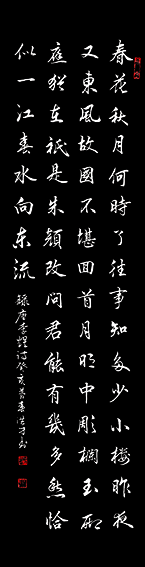 春花秋月何時了往事知多少小樓昨夜
又東風故國不堪回首月明中彫欄玉砌
應猶在祇是朱顏改問君能有幾多愁恰
似一江春水向东流
錄唐李煜詞癸亥暮春